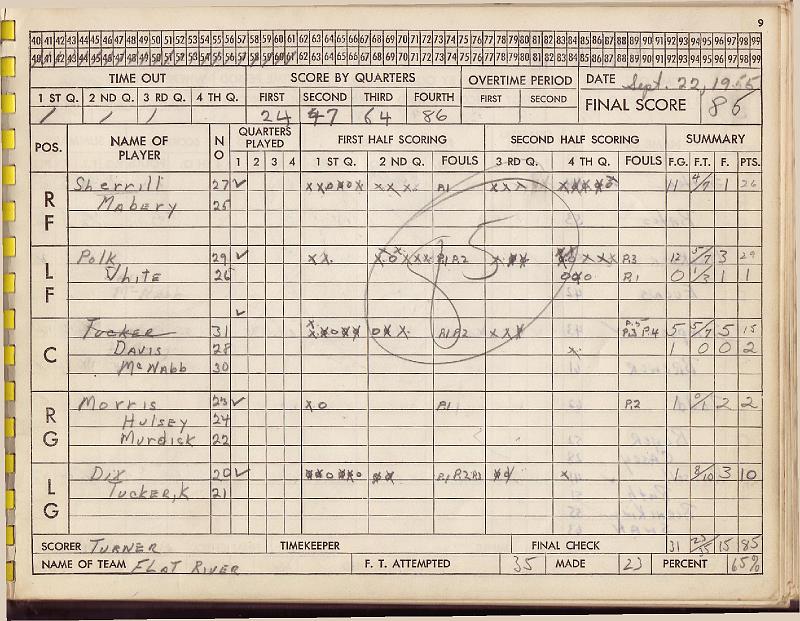 9
40 41 42 43 44 45 46 47 48 49 50 51 52 53 54 55 56 57 58 59 60 61 62 63 64 65 66 67 68 69 70 71 72 73 74 75 76 77 78 79 80 81 82 83 84 85 86 87 88 89 90 91 92 93 94 95 96 97 98 99
40 41 42 43 44 45 46 47 48 49 50 51 52 53 54 55 56 57 58 59 60 61 62 63 64 65 66 67 68 69 70 71 72 73 74 75 76 77 78 79 80 81 82 83 84 85 86 87 88 89 90 91 92 93 94 95 96 97 98 99
TIME OUT SCORE BY QUARTERS OVERTIME PERIOD DATE Sept. 22, 1955
1 ST Q. 2 ND Q. 3 RD Q. 4 TH Q. FIRST SECOND THIRD FOURTH FIRST SECOND FINAL SCORE 86
/ / / 24 47 64 86
POS. NAME OF PLAYER NO QUARTERS PLAYED FIRST HALF SCORING SECOND HALF SCORING SUMMARY
1 2 3 4 1 ST Q. 2 ND Q. FOULS 3 RD Q. 4 TH Q. FOULS F.G. F.T. F. PTS.
RF Sherrill 27 P.1 11 4/7 1 26
Mabery 25
LF Polk 29 P.1 P.2 P.3 12 5/7 3 29
White 26 P.1 0 1/3 1 1
C Tucker 31 P.1 P.2 P.5 P.3 P.4 5 5/7 5 15
DAVIS 28 1 0 0 2
McNabb 30
RG Morris 23 P.1 P.2 1 0/1 2 2
Hulsey 24
Murdick 22
LG Dix 20 P.1 P.2 P.3 1 8/10 3 10
TUCKER, K 21
85
SCORER TURNER TIMEKEEPER FINAL CHECK 31 23/35 15 85
NAME OF TEAM FLAT RIVER F. T. ATTEMPTED 35 MADE 23 PERCENT 65%